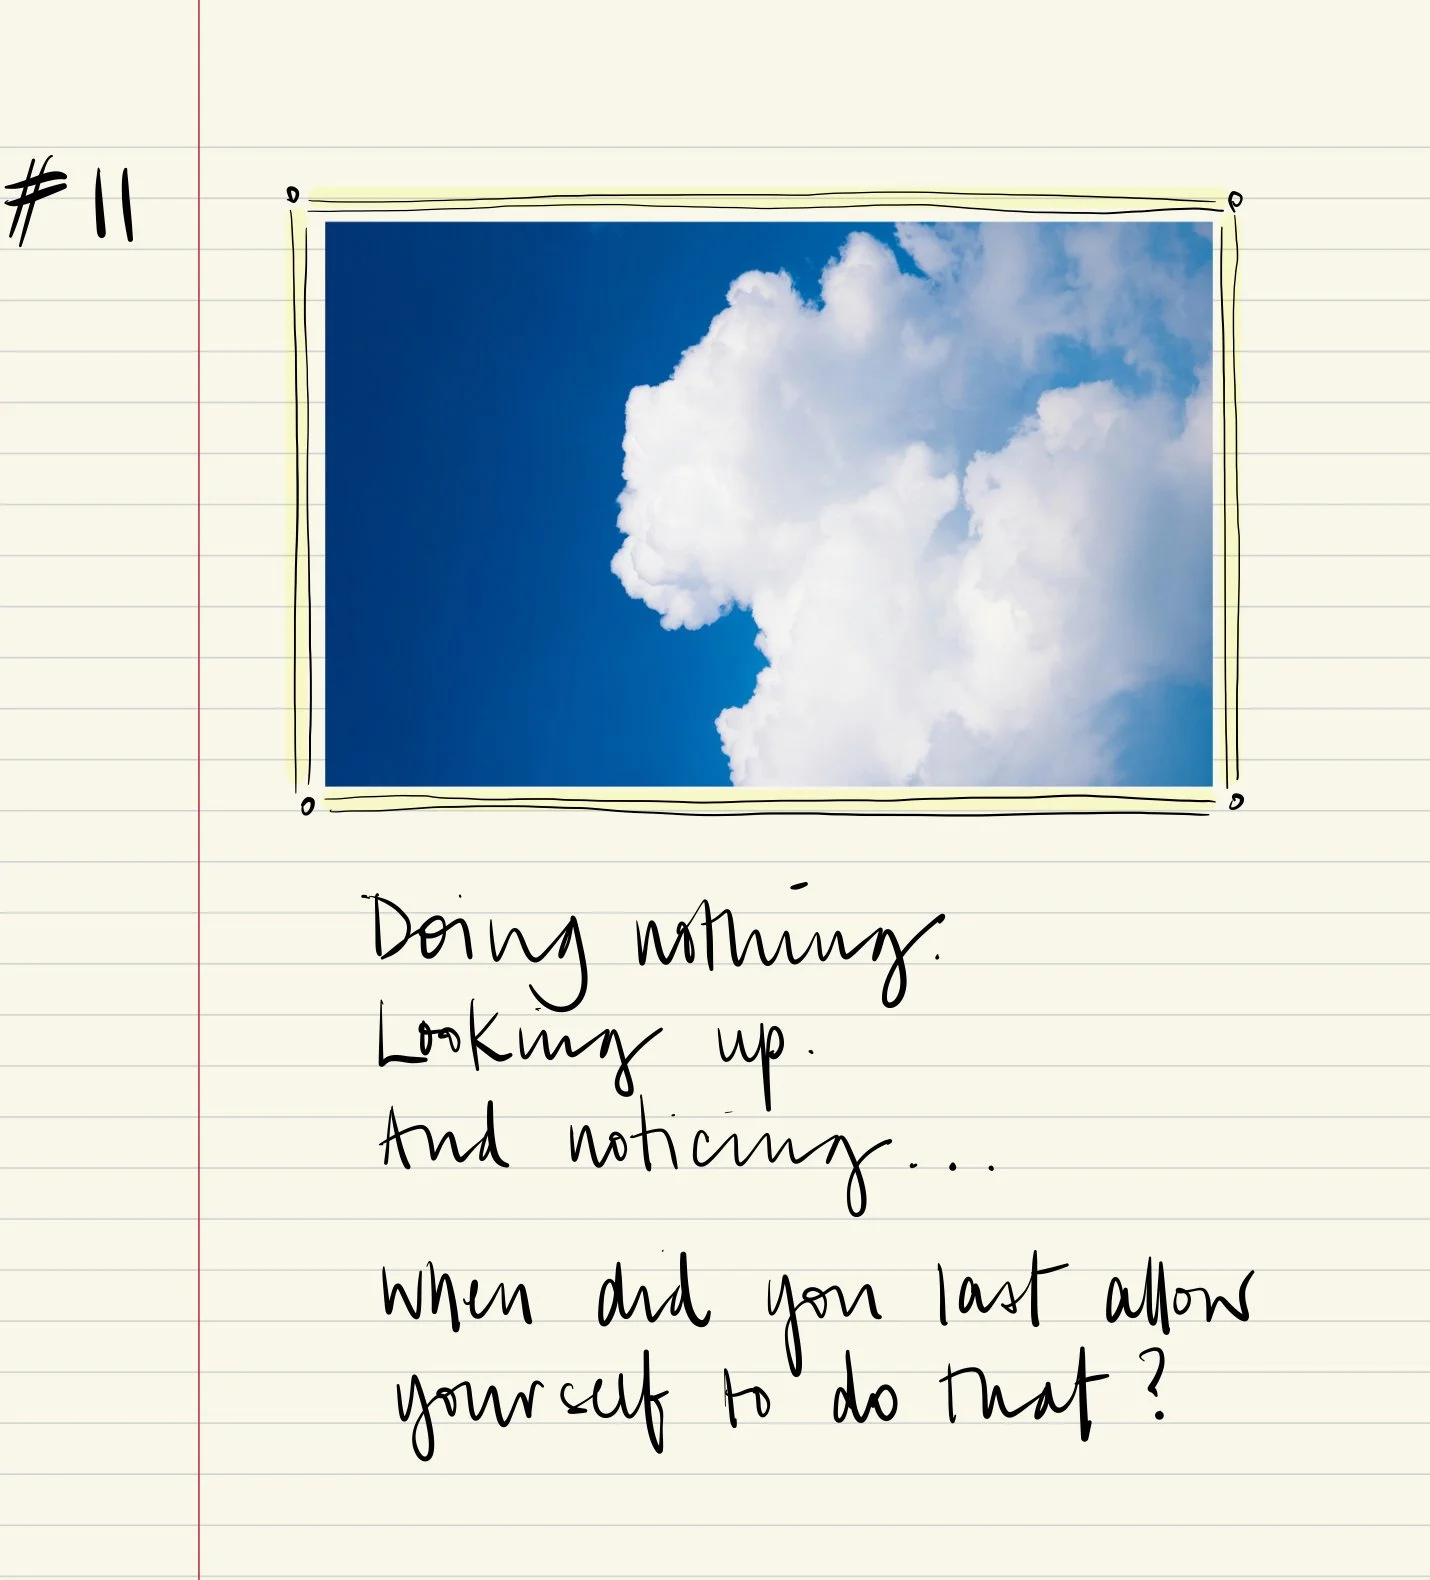 #11
Doing nothing.
Looking up.
And noticing....
when did you last allow
yourself to do that?